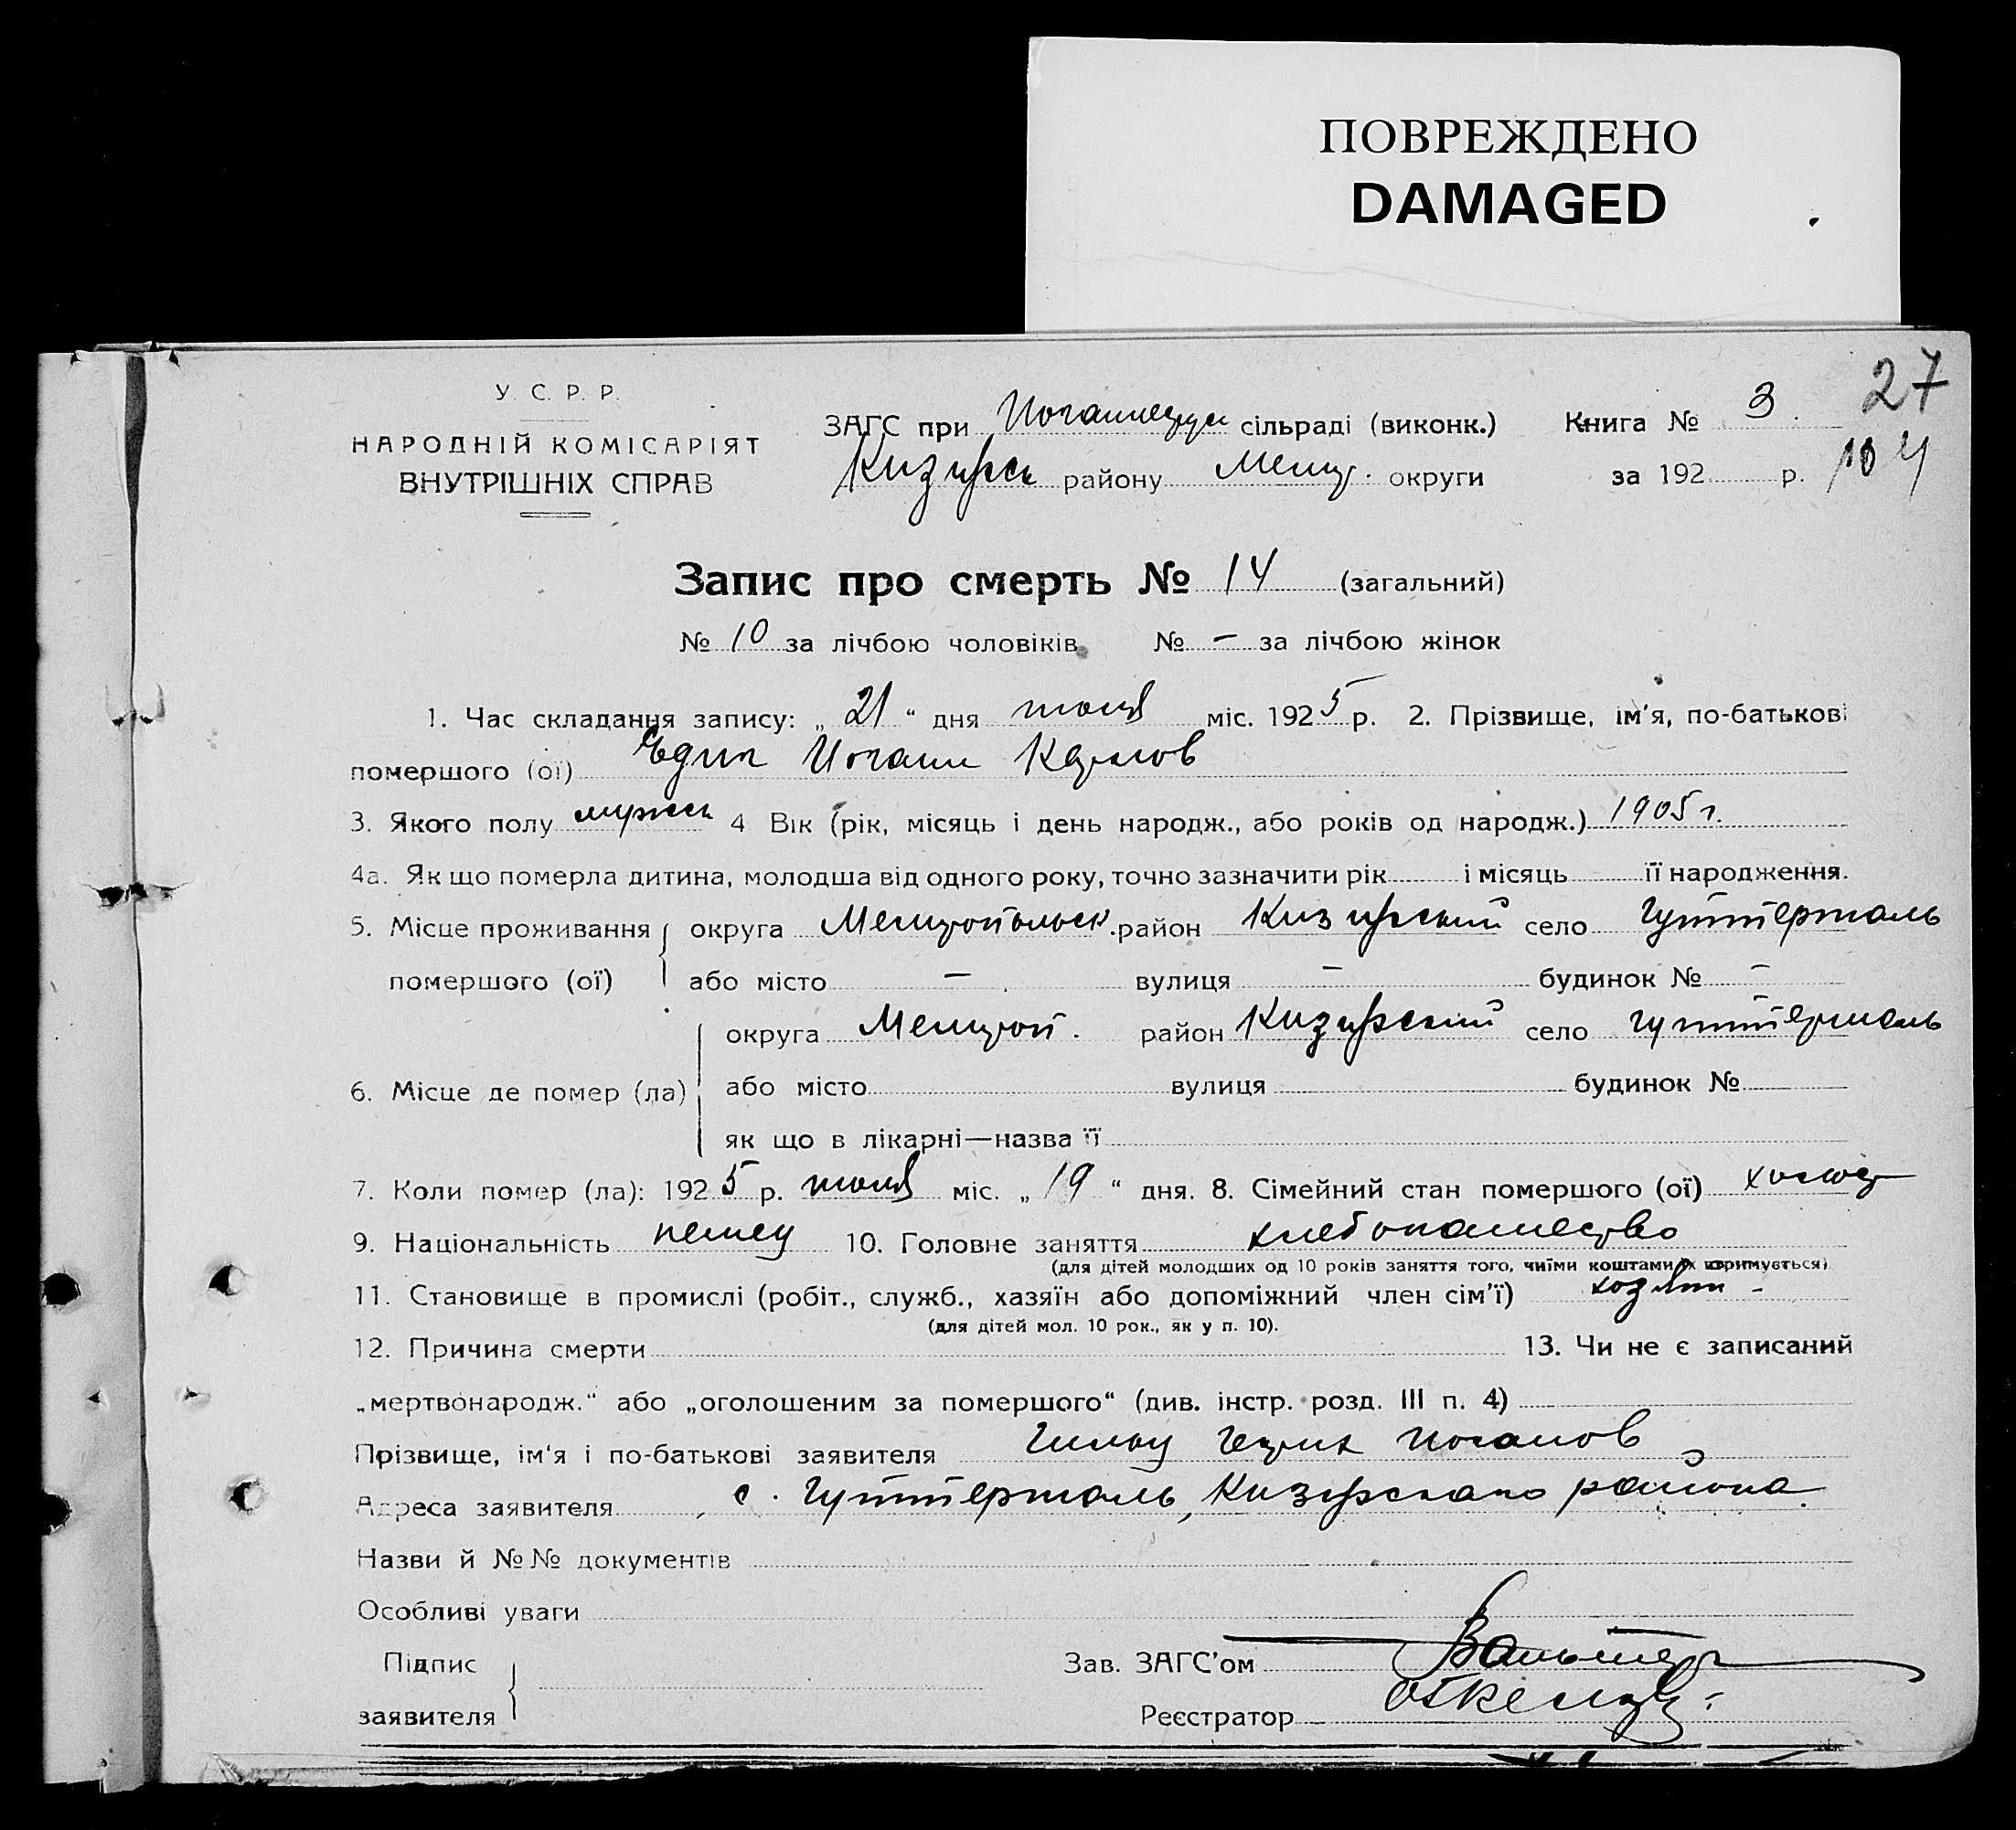 ПОВРЕЖДЕНО
DAMAGED
27
У. С. Р. Р.
НАРОДНІЙ КОМІСАРІЯТ
ВНУТРІШНІХ СПРАВ
ЗАГС при сільраді (виконк.) Книга № 3.
района Мелит. округи за 192 р.
Запис про смерть № 14 (загальний)
№ 10 за лічбою чоловіків № – за лічбою жінок
1. Час складання запису: „ 21 “ дня июля міс. 1925 р. 2. Прізвище, ім'я, по-батькові
помершого (ої) Иоганн
3. Якого полу мужск 4 Вік (рік, місяць і день народж., або років од народж.) 1905 г.
4а. Як що померла дитина, молодша від одного року, точно зазначити рік і місяць її народження.
5. Місце проживання округа Мелитопольск. район Кизиярский село Гуттерталь
помершого (ої) або місто – вулиця – будинок № –
округа Мелитоп. район Кизиярский село Гуттерталь
6. Місце де помер (ла) або місто вулиця будинок №
як що в лікарні—назва її
7. Коли помер (ла): 1925 р. июля міс. „ 19 “ дня. 8. Сімейний стан помершого (ої) холост
9. Національність немец 10. Головне заняття хлебопашество
(для дітей молодших од 10 років заняття того, чиїми коштами їх втримується)
11. Становище в промислі (робіт., служб., хазяїн або допоміжний член сім'ї) хозяин -
(для дітей мол. 10 рок., як у п. 10).
12. Причина смерти 13. Чи не є записаний
„мертвонародж.“ або „оголошеним за помершого“ (див. інстр. розд. III п. 4)
Прізвище, ім'я і по-батькові заявителя
Адреса заявителя с. Гуттерталь, Кизиярскаго района.
Назви й №№ документів
Особливі уваги
Підпис Зав. ЗАГС'ом Вальтер
заявителя Реєстратор